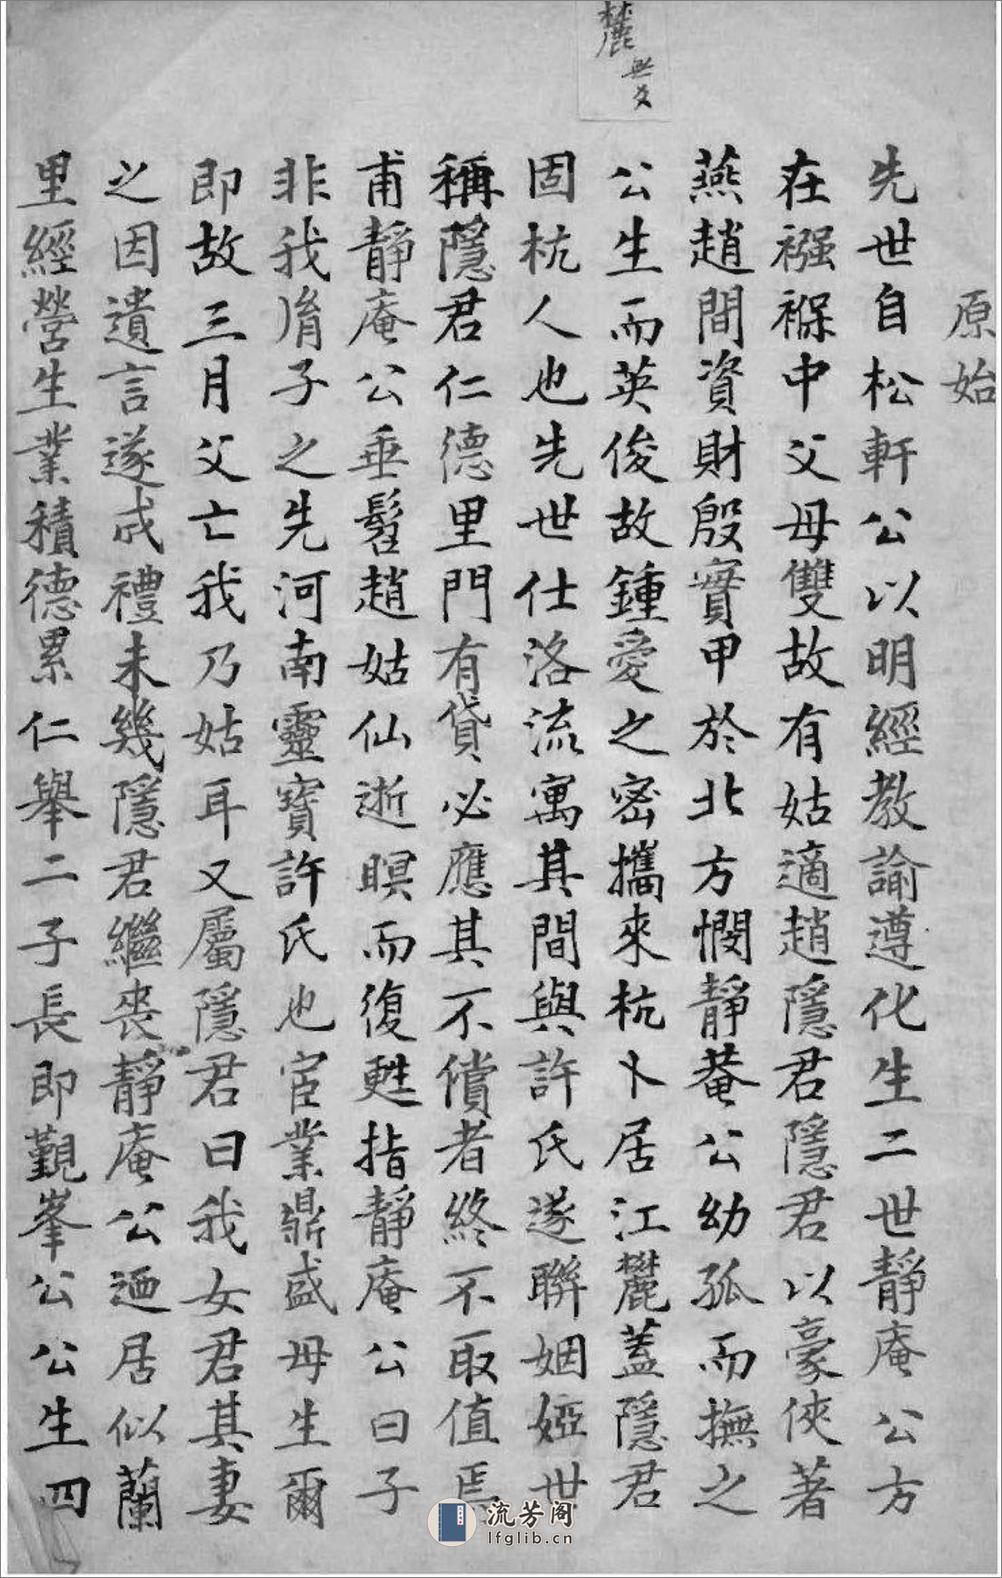 原始
先世自松軒公以明經教諭遵化生二世靜庵公方
在襁褓中父母雙故有姑適趙隱君隱君以豪俠著
燕趙間資財殷實甲於北方憫靜菴公幼孤而撫之
公生而英俊故鍾愛之密攜來杭卜居江麓蓋隱君
固杭人也先世仕洛流寓其間與許氏遂聯姻婭世
稱隱君仁德里門有貸必應其不償者終不取值焉
甫靜庵公垂髫趙姑仙逝瞑而復甦指靜庵公曰子
非我胤子之先河南靈寶許氏也宦業鼎盛母生爾
即故三月父亡我乃姑耳又屬隱君曰我女君其妻
之因遺言遂成禮未幾隱君繼喪靜庵公迺居似蘭
里經營生業積德累仁舉二子長即觀峯公公生四
流芳阁
lfglib.cn